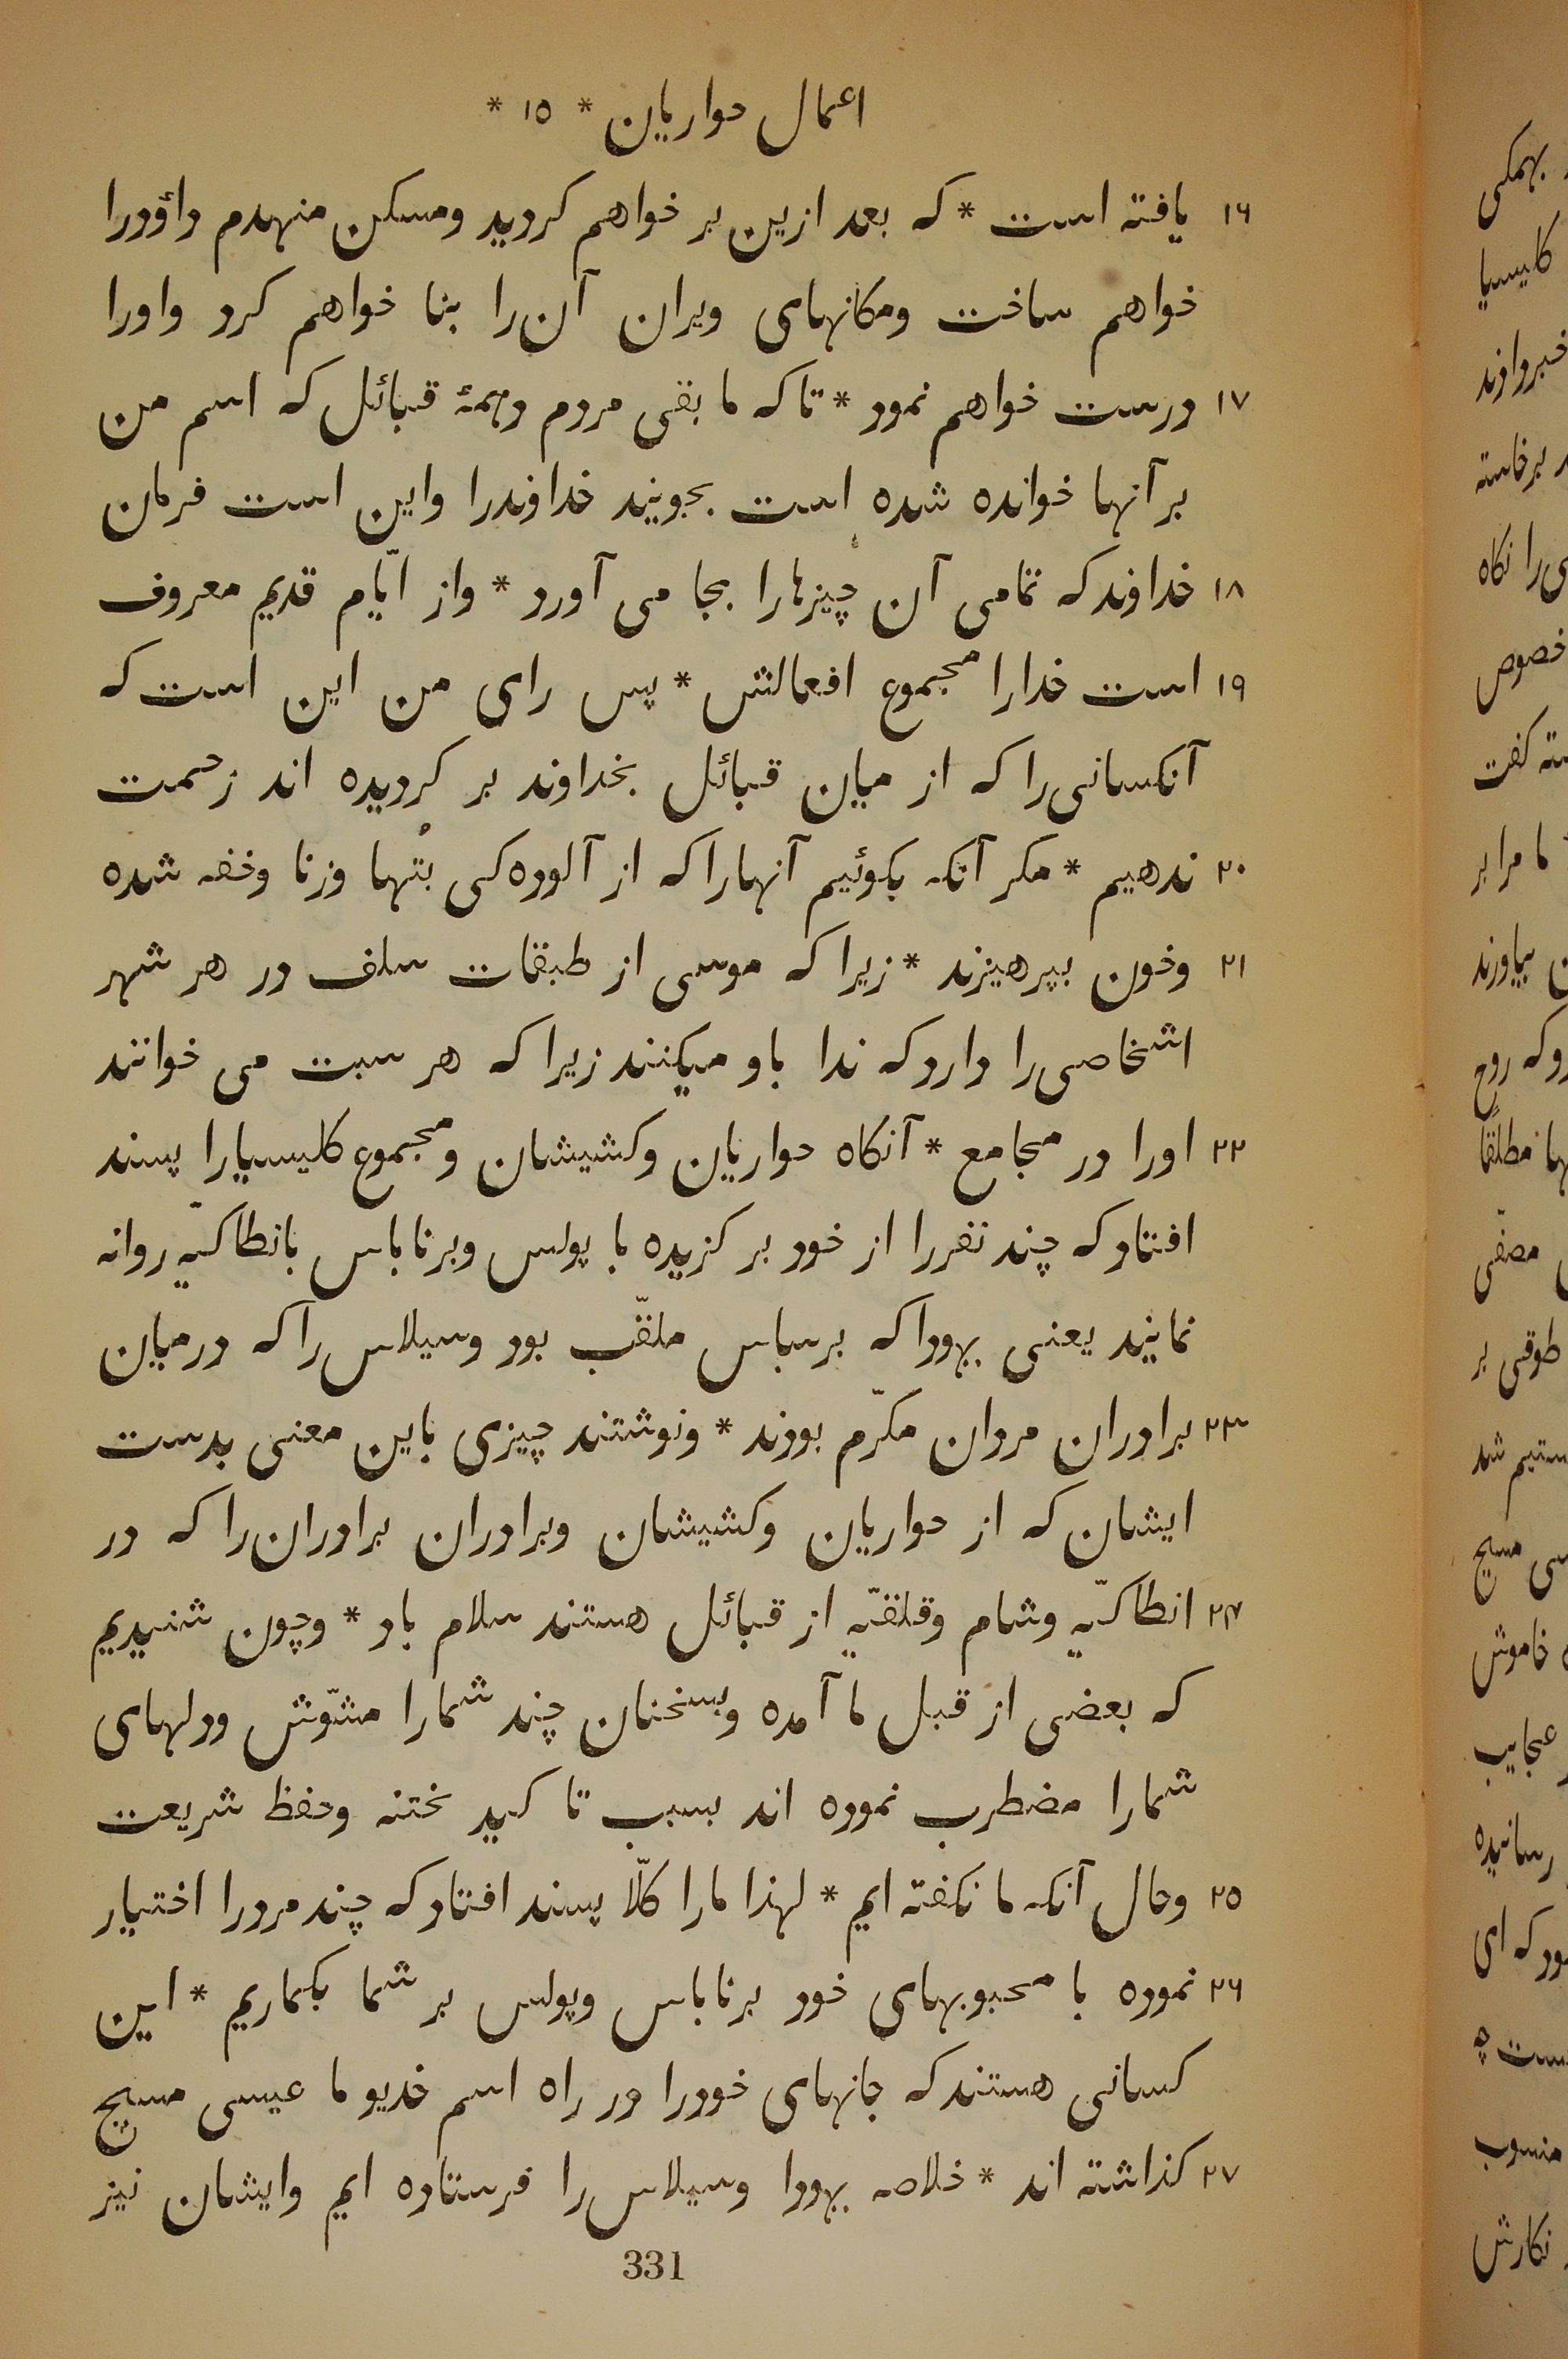 اعمال حواریان * ١٥ *
١٦ یافته است * که بعد ازین بر خواهم کردید ومسکن منهدم داؤدرا
خواهم ساخت ومکانهای ویران آن را بنا خواهم کرد واورا
١٧ درست خواهم نمود * تا که ما بقی مردم وهمهٔ قبائل که اسم من
بر آنها خوانده شده است بجویند خداوندرا واین است فرمان
١٨ خداوند که تمامی آن چیزهارا بجا می آورد * واز ایّام قدیم معروف
١٩ است خدارا مجموع افعالش * پس رای من این است که
آنکسانی را که از میان قبائل بخداوند بر کردیده اند زحمت
٢٠ ندهیم * مکر آنکه بکوئیم آنهارا که از آلوده کی بُتها وزنا وخفه شده
٢١ وخون بپرهیزند * زیرا که موسی از طبقات سلف در هر شهر
اشخاصی را دارد که ندا باو میکنند زیرا که هر سبت می خوانند
٢٢ اورا در مجامع * آنکاه حواریان وکشیشان ومجموع کلیسیارا پسند
افتاد که چند نفررا از خود بر کزیده با پولس وبرناباس بانطاکیّه روانه
نمایند یعنی یهودا که برسباس ملقّب بود وسیلاس را که درمیان
٢٣ برادران مردان مکرّم بودند * ونوشتند چیزی باین معنی بدست
ایشان که از حواریان وکشیشان وبرادران برادران را که در
٢۴ انطاکیّه وشام وقلقیّه از قبائل هستند سلام باد * وچون شنیدیم
که بعضی از قبل ما آمده وبسخنان چند شمارا مشوّش ودلهای
شمارا مضطرب نموده اند بسبب تا کید ختنه وحفظ شریعت
٢٥ وحال آنکه ما نکفته ایم * لهذا مارا کلّا پسند افتاد که چند مردرا اختیار
٢٦ نموده با محبوبهای خود برناباس وپولس بر شما بکماریم * این
کسانی هستند که جانهای خودرا در راه اسم خدیو ما عیسی مسیح
٢٧ کذاشته اند * خلاصه یهودا وسیلاس را فرستاده ایم وایشان نیز
331
بهمکی
کلیسیا
خبردادند
برخاسته
را نکاه
خصوص
کفت
ما مرا بر
بیاورند
که روح
مطلقًا
مصفّی
طوقی بر
شد
مسیح
خاموش
عجایب
رسانیده
که ای
منسوب
نکارش